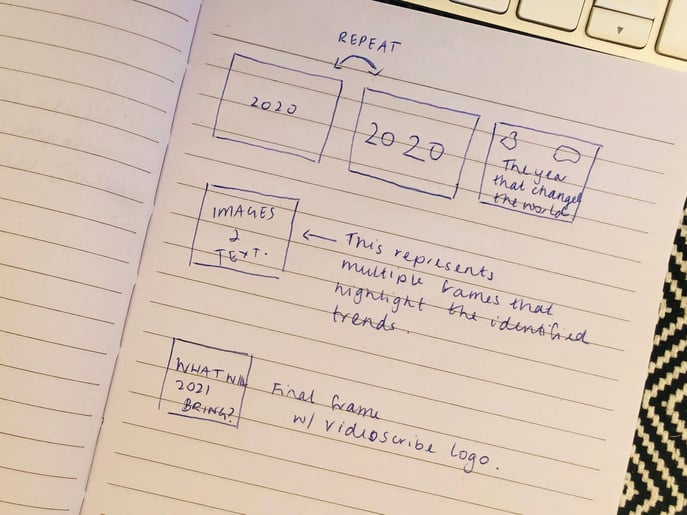 REPEAT
2020
2020
The year
that changed
the world
IMAGES
&
TEXT.
This represents
multiple frames that
highlight the identified
trends.
WHAT WILL
2021
BRING?
Final frame
w/ videoscribe logo.